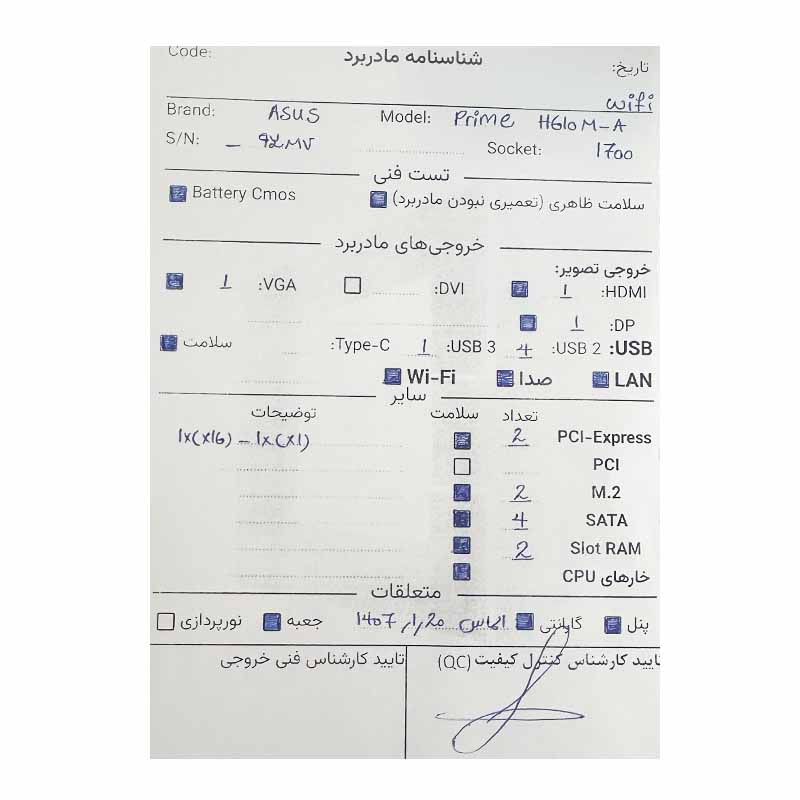 Code: شناسنامه مادربرد تاریخ:
wifi
Brand: ASUS Model: Prime H610M-A
S/N: Socket: 1700
تست فنی
سلامت ظاهری (تعمیری نبودن مادربرد) Battery Cmos
خروجی‌های مادربرد
خروجی تصویر:
HDMI: 1 DVI: VGA: 1
DP: 1
USB: USB 2: 4 USB 3: 1 Type-C: سلامت
LAN صدا Wi-Fi
سایر
تعداد سلامت توضیحات
PCI-Express 2 1x(x16) - 1x(x1)
PCI
M.2 2
SATA 4
Slot RAM 2
خارهای CPU
متعلقات
پنل گارانتی الماس 1407 جعبه نورپردازی
تایید کارشناس کنترل کیفیت (QC) تایید کارشناس فنی خروجی